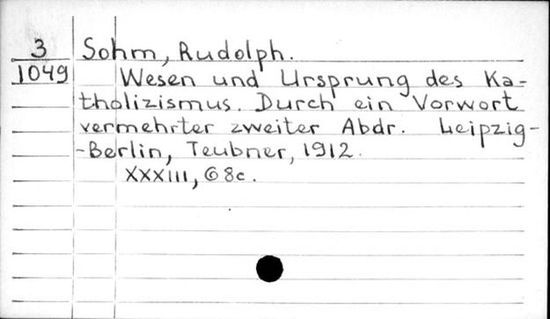 3 Sohm, Rudolph.
1049 Wesen und Ursprung des Ka-
tholizismus. Durch ein Vorwort
vermehrter zweiter Abdr. Leipzig-
-Berlin, Teubner, 1912.
XXXIII, 68c.